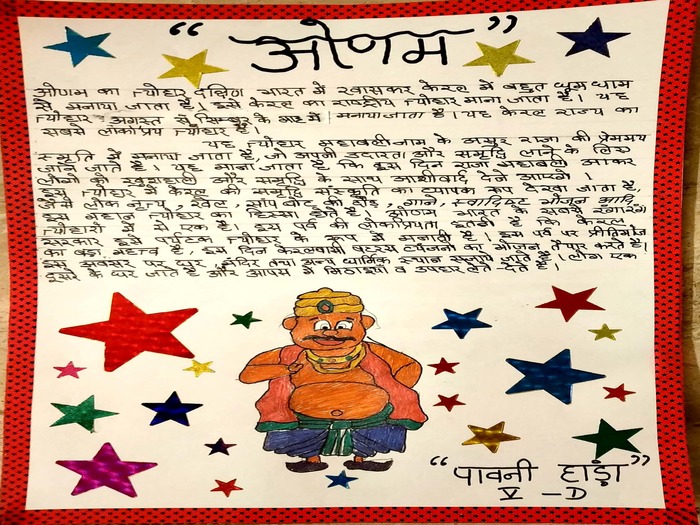 “ओणम”
ओणम का त्यौहार दक्षिण भारत में खासकर केरल में बहुत धूम धाम
से मनाया जाता है। इसे केरल का राष्ट्रीय त्यौहार माना जाता है। यह
त्यौहार अगस्त से सितम्बर के माह में मनाया जाता है। यह केरल राज्य का
सबसे लोकप्रिय त्यौहार है।
यह त्यौहार महाबली नाम के असुर राजा की प्रेममय
स्मृति में मनाया जाता है, जो अपनी उदारता और समृद्धि लाने के लिए
जाने जाते हैं। यह माना जाता है कि इस दिन राजा महाबली आकर
लोगों को खुशहाली और समृद्धि के साथ आशीर्वाद देने आएंगे।
इस त्यौहार में केरल की समृद्ध संस्कृति का व्यापक रूप देखा जाता है,
जैसे लोक नृत्य, खेल, साँप बोट की दौड़, गाने, स्वादिष्ट भोजन आदि
इस महान त्यौहार का हिस्सा होते हैं। ओणम भारत के सबसे रंगारंग
त्यौहारों में से एक है। इस पर्व की लोकप्रियता इतनी है कि केरल
सरकार इसे पर्यटक त्यौहार के रूप में मनाती है। इस पर्व पर प्रीतिभोज
का बड़ा महत्व है, इस दिन केरलवासी षटरस व्यंजनों का भोजन तैयार करते हैं।
इस अवसर पर घर, मंदिर तथा अन्य धार्मिक स्थान सजाये जाते हैं। लोग एक
दूसरे के घर जाते हैं और आपस में मिठाइयाँ व उपहार लेते-देते हैं।
“पावनी हाड़ा”
V-D